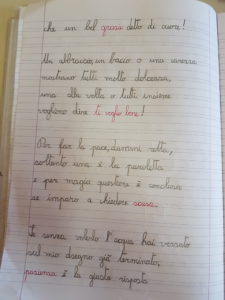 che un bel grazie detto di cuore!
Un abbraccio, un bacio o una carezza
mostrano tutti molta dolcezza,
una alla volta o tutti insieme
vogliono dire ti voglio bene!
Per far la pace, dammi retta,
soltanto una è la paroletta
e per magia questione è conclusa
se imparo a chiedere scusa.
Se senza volerlo l'acqua hai versato
sul mio disegno già terminato,
pazienza è la giusta risposta